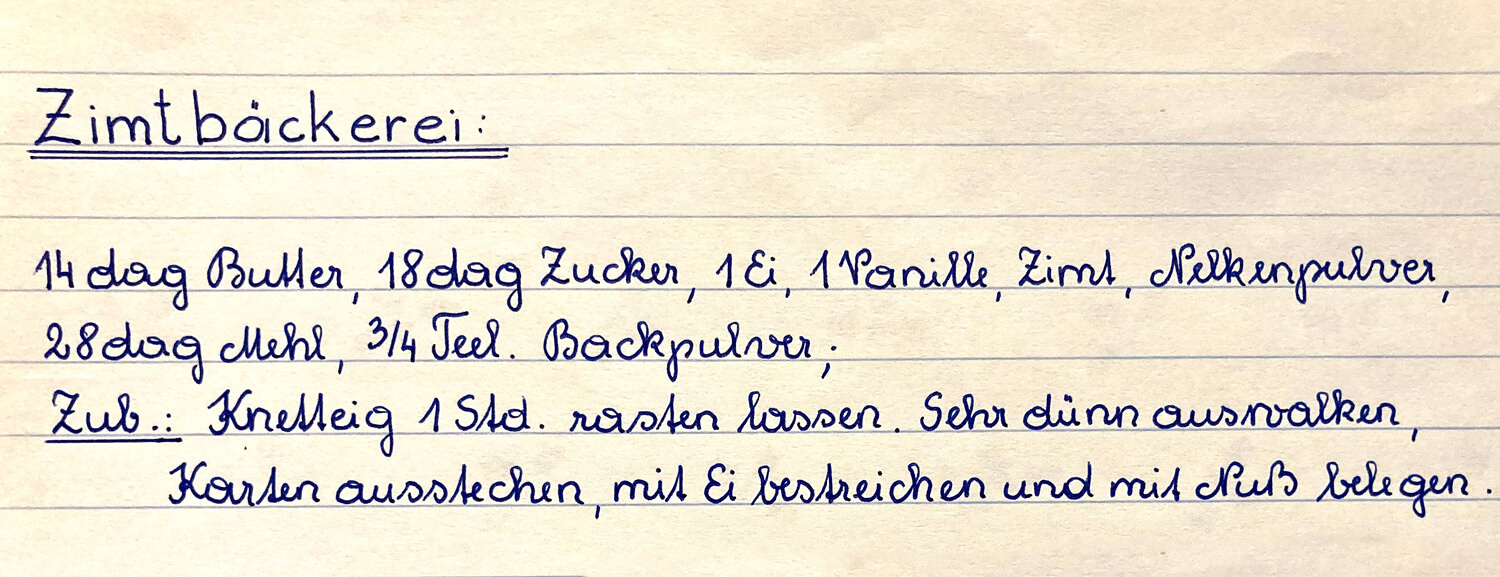 Zimtbäckerei:
14 dag Butter, 18 dag Zucker, 1 Ei, 1 Vanille, Zimt, Nelkenpulver,
28 dag Mehl, 3/4 Teel. Backpulver;
Zub.: Knetteig 1 Std. rasten lassen. Sehr dünn auswalken,
Karten ausstechen, mit Ei bestreichen und mit Nuß belegen.